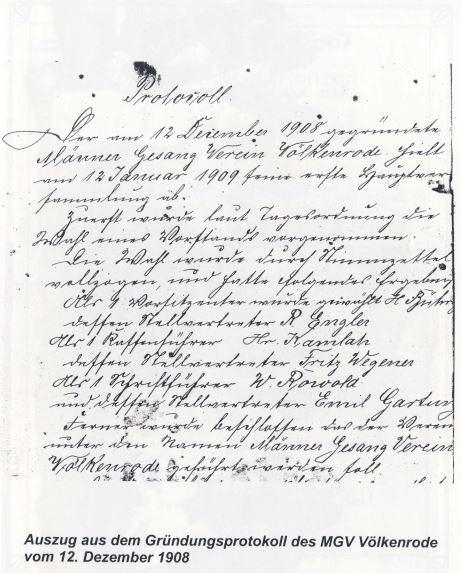 Protocoll.
Der am 12 Deiember 1908 gegründete
Männer Gesang Verein Völkenrode hielt
am 12 Januar 1909 seine erste Hauptver
sammlung ab.
Zuerst wurde laut Tagesordnung die
Wahl eines Vorstands vorgenommen
Die Wahl wurde durch Stimmzettel
vollzogen, und hatte folgendes Ergebniß
Als 1 Vorsitzenter wurde gewählt H
dessen Stellvertreter R Engler
Als 1 Kassenführer Hr. Kamlah
dessen Stellvertreter Fritz Wegener
Als 1 Schriftführer W. Rowold
und dessen Stellvertreter Emil
Ferner wurde beschlossen das der Verein
unter den Namen Männer Gesang Verein
Völkenrode geführt werden soll
Auszug aus dem Gründungsprotokoll des MGV Völkenrode
vom 12. Dezember 1908